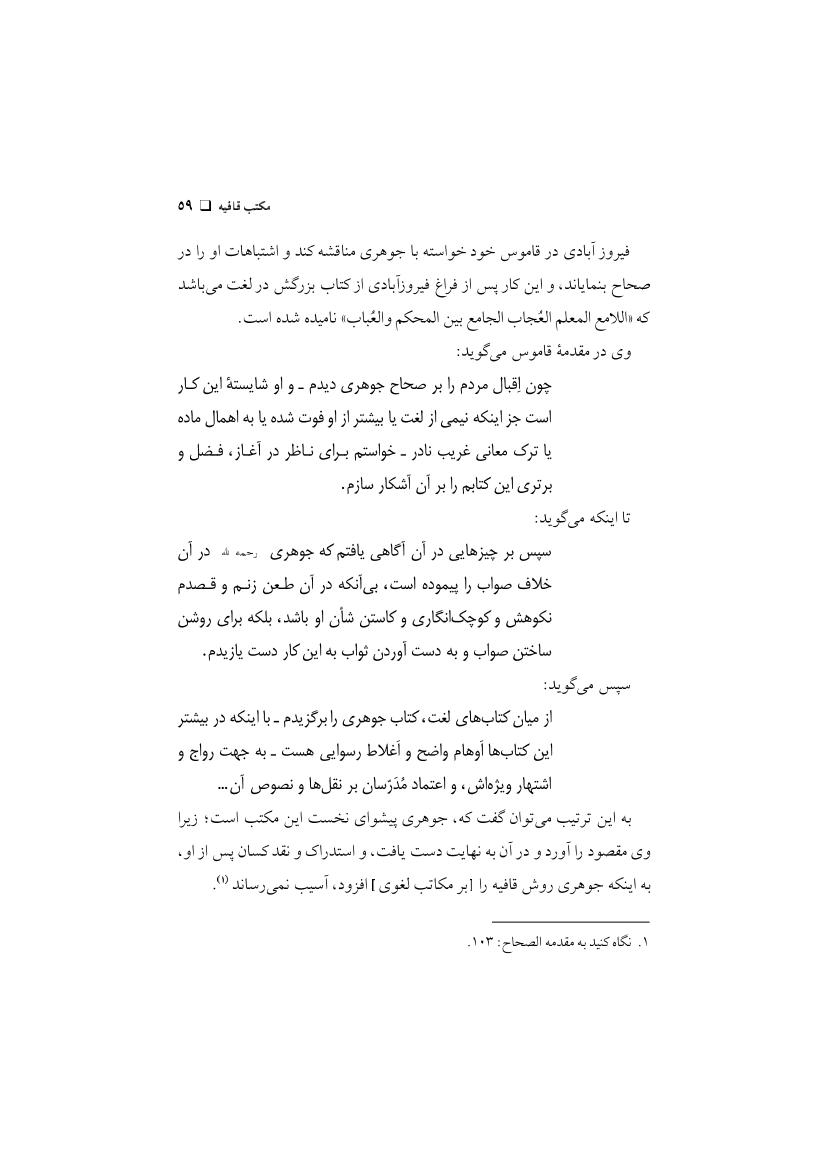 مکتب قافیه ❑ ۵۹
فیروز آبادی در قاموس خود خواسته با جوهری مناقشه کند و اشتباهات او را در
صحاح بنمایاند، و این کار پس از فراغ فیروزآبادی از کتاب بزرگش در لغت می‌باشد
که «اللامع المعلم العُجاب الجامع بین المحکم والعُباب» نامیده شده است.
وی در مقدمۀ قاموس می‌گوید:
چون اِقبال مردم را بر صحاح جوهری دیدم ـ و او شایستۀ این کـار
است جز اینکه نیمی از لغت یا بیشتر از او فوت شده یا به اهمال ماده
یا ترک معانی غریب نادر ـ خواستم بـرای نـاظر در آغـاز، فـضل و
برتری این کتابم را بر آن آشکار سازم.
تا اینکه می‌گوید:
سپس بر چیزهایی در آن آگاهی یافتم که جوهری رحمه الله در آن
خلاف صواب را پیموده است، بی‌آنکه در آن طـعن زنـم و قـصدم
نکوهش و کوچک‌انگاری و کاستن شأن او باشد، بلکه برای روشن
ساختن صواب و به دست آوردن ثواب به این کار دست یازیدم.
سپس می‌گوید:
از میان کتاب‌های لغت، کتاب جوهری را برگزیدم ـ با اینکه در بیشتر
این کتاب‌ها اَوهام واضح و اَغلاط رسوایی هست ـ به جهت رواج و
اشتهار ویژه‌اش، و اعتماد مُدَرّسان بر نقل‌ها و نصوص آن...
به این ترتیب می‌توان گفت که، جوهری پیشوای نخست این مکتب است؛ زیرا
وی مقصود را آورد و در آن به نهایت دست یافت، و استدراک و نقد کسان پس از او،
به اینکه جوهری روش قافیه را [بر مکاتب لغوی] افزود، آسیب نمی‌رساند (۱).
۱. نگاه کنید به مقدمه الصحاح: ۱۰۳.